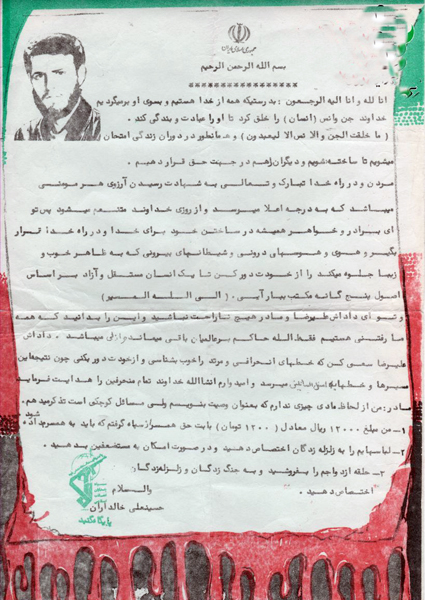 جمهوری اسلامی ایران
بسم الله الرحمن الرحیم
انا لله و انا الیه الرجعون : بدرستیکه همه از خدا هستیم و بسوی او برمیگردیم
خداوند جن وانس (انسان) را خلق کرد تا او را عبادت و بندگی کند .
( ما خلقت الجن و الانس الا لیعبدون ) و همانطور در دوران زندگی امتحان
میشویم تا ساخته شویم و دیگران را هم در جهت حق قرار دهیم .
مردن و در راه خدا تبارک و تعالی به شهادت رسیدن آرزوی هر مومنی
میباشد که به درجه اعلا میرسد و از روزی خداوند متنعم میشود پس تو
ای برادر و خواهر همیشه در ساختن خود برای خدا و در راه خدا قرار
بگیر و هوی و هوسهای درونی و شیطانهای بیرونی که به ظاهر خوب و
زیبا جلوه میکند را از خود دور کن تا یک انسان مستقل و آزاد بر اساس
اصول پنج گانه مکتب ببار آیی . ( الی الله المسیر )
و تو ای داداش علیرضا و مادر هیچ ناراحت نباشید و این را بدانید که همه
ما رفتنی هستیم فقط الله حاکم بر عالمیان باقی میماند و ازلی میباشد . داداش
علیرضا سعی کن که خطهای انحرافی و مرتد را خوب بشناسی و از خودت دور بکنی چون نتیجه این
مسیرها و خطها به میرسد و امیدوارم انشاالله خداوند تمام منحرفین را هدایت فرماید
مادر : من از لحاظ مادی چیزی ندارم که بعنوان وصیت بنویسم ولی مسائل کوچکی است تذکر میدهم .
۱- من مبلغ ۱۲۰۰۰ ریال معادل ( ۱۲۰۰ تومان ) بابت حق همسر از سپاه گرفتم که باید به همسرم داده شود
۲- لباسهایم را به زلزله زدگان اختصاص دهید و در صورت امکان به مستضعفین بدهید .
۳- حلقه ازدواجم را بفروشید و به جنگ زدگان و زلزله زدگان
اختصاص دهید .
والسلام
حسینعلی خالداران